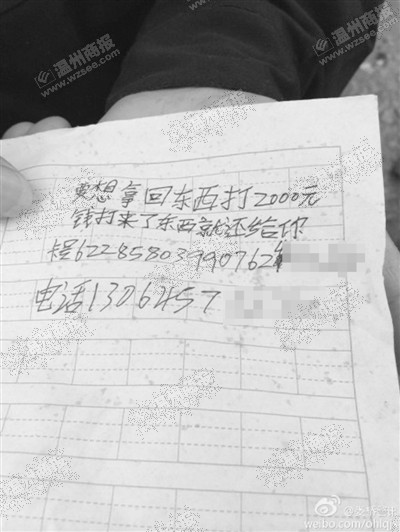 温州商报
www.wzsee.com
要想拿回东西打2000元
钱打来了东西就还给你
卡号622858039907621
电话1306457
weibo.com/ohlqjx